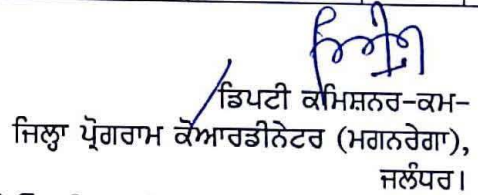 ਡਿਪਟੀ ਕਮਿਸ਼ਨਰ-ਕਮ-
ਜਿਲ੍ਹਾ ਪ੍ਰੋਗਰਾਮ ਕੋਆਰਡੀਨੇਟਰ (ਮਗਨਰੇਗਾ),
ਜਲੰਧਰ।